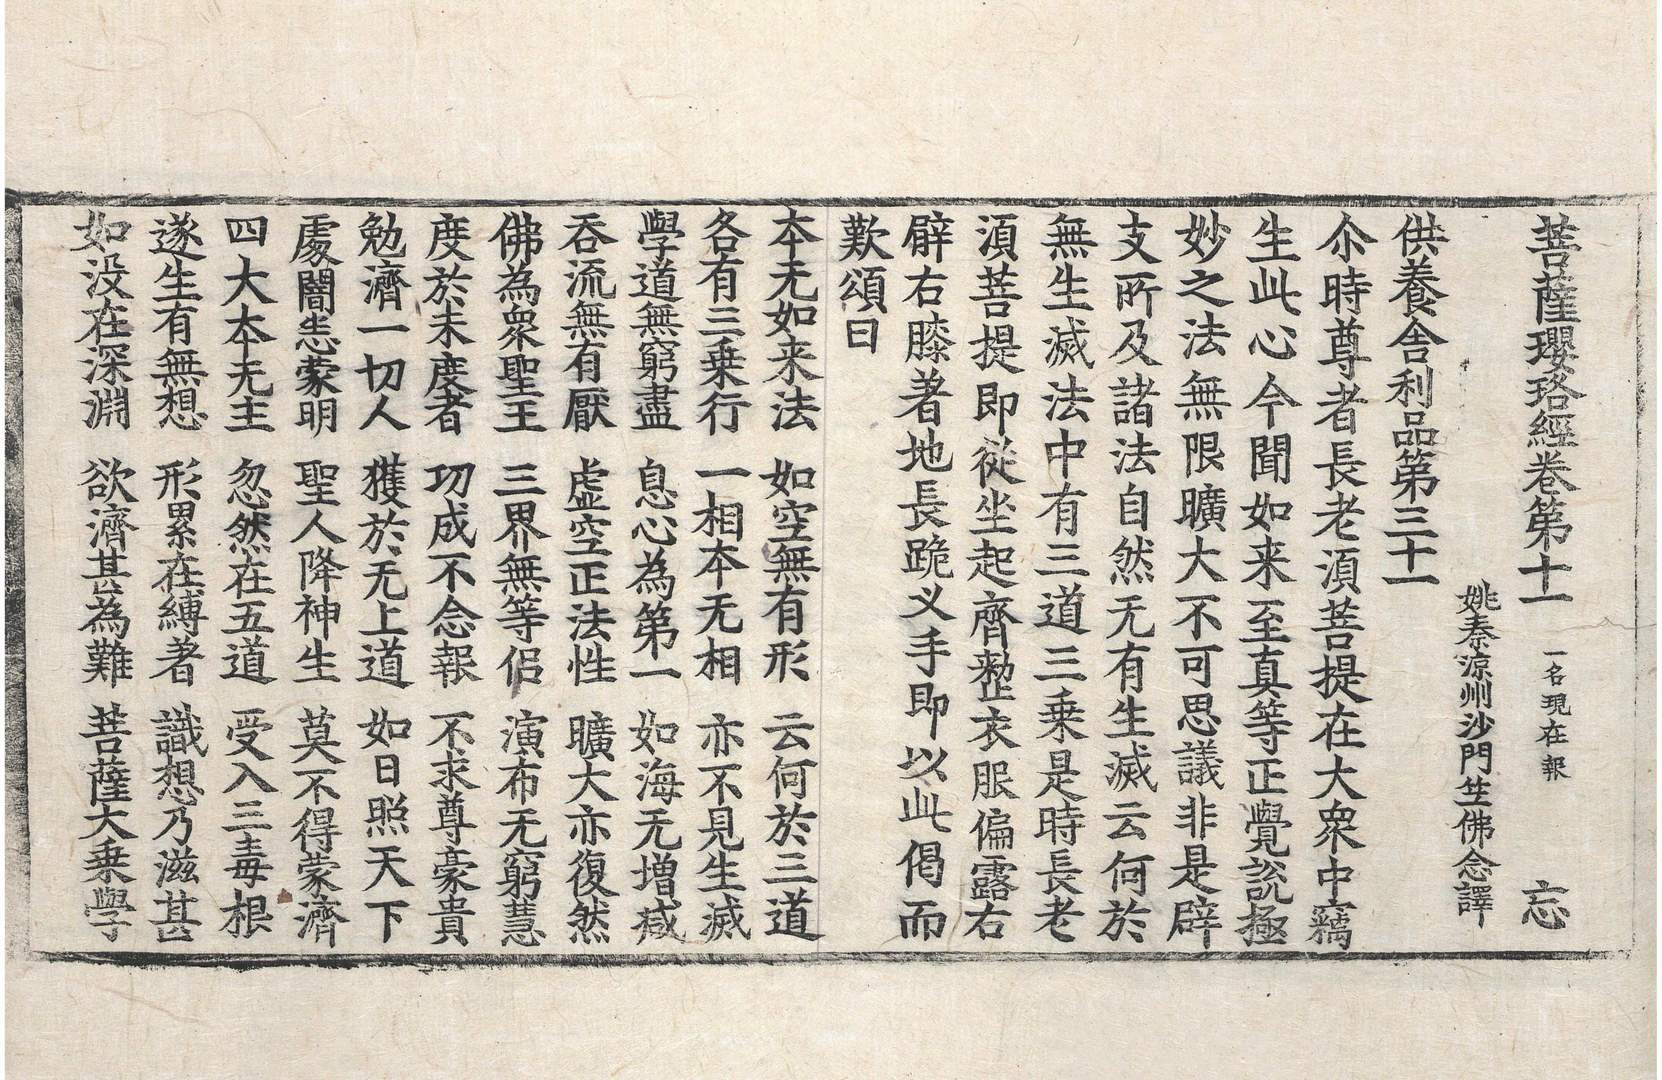 菩薩瓔珞經卷第十一 一名現在報 忘
姚秦涼州沙門竺佛念譯
供養舍利品第三十一
尒時尊者長老湏菩提在大衆中竊
生此心今聞如来至真等正覺說極
妙之法無限曠大不可思議非是辟
支所及諸法自然无有生滅云何於
無生滅法中有三道三乗是時長老
湏菩提即從坐起齊整衣服偏露右
臂右膝著地長跪叉手即以此偈而
歎頌曰
本无如来法 如空無有形 云何於三道
各有三乗行 一相本无相 亦不見生滅
學道無窮盡 息心為第一 如海无增减
吞流無有厭 虛空正法性 曠大亦復然
佛為衆聖王 三界無等侣 演布无窮慧
度於未度者 功成不念報 不求尊豪貴
勉濟一切人 獲於无上道 如日照天下
處闇恚蒙明 聖人降神生 莫不得蒙濟
四大本无主 忽然在五道 受入三毒根
遂生有無想 形累在縛著 識想乃滋甚
如没在深淵 欲濟甚為難 菩薩大乗學